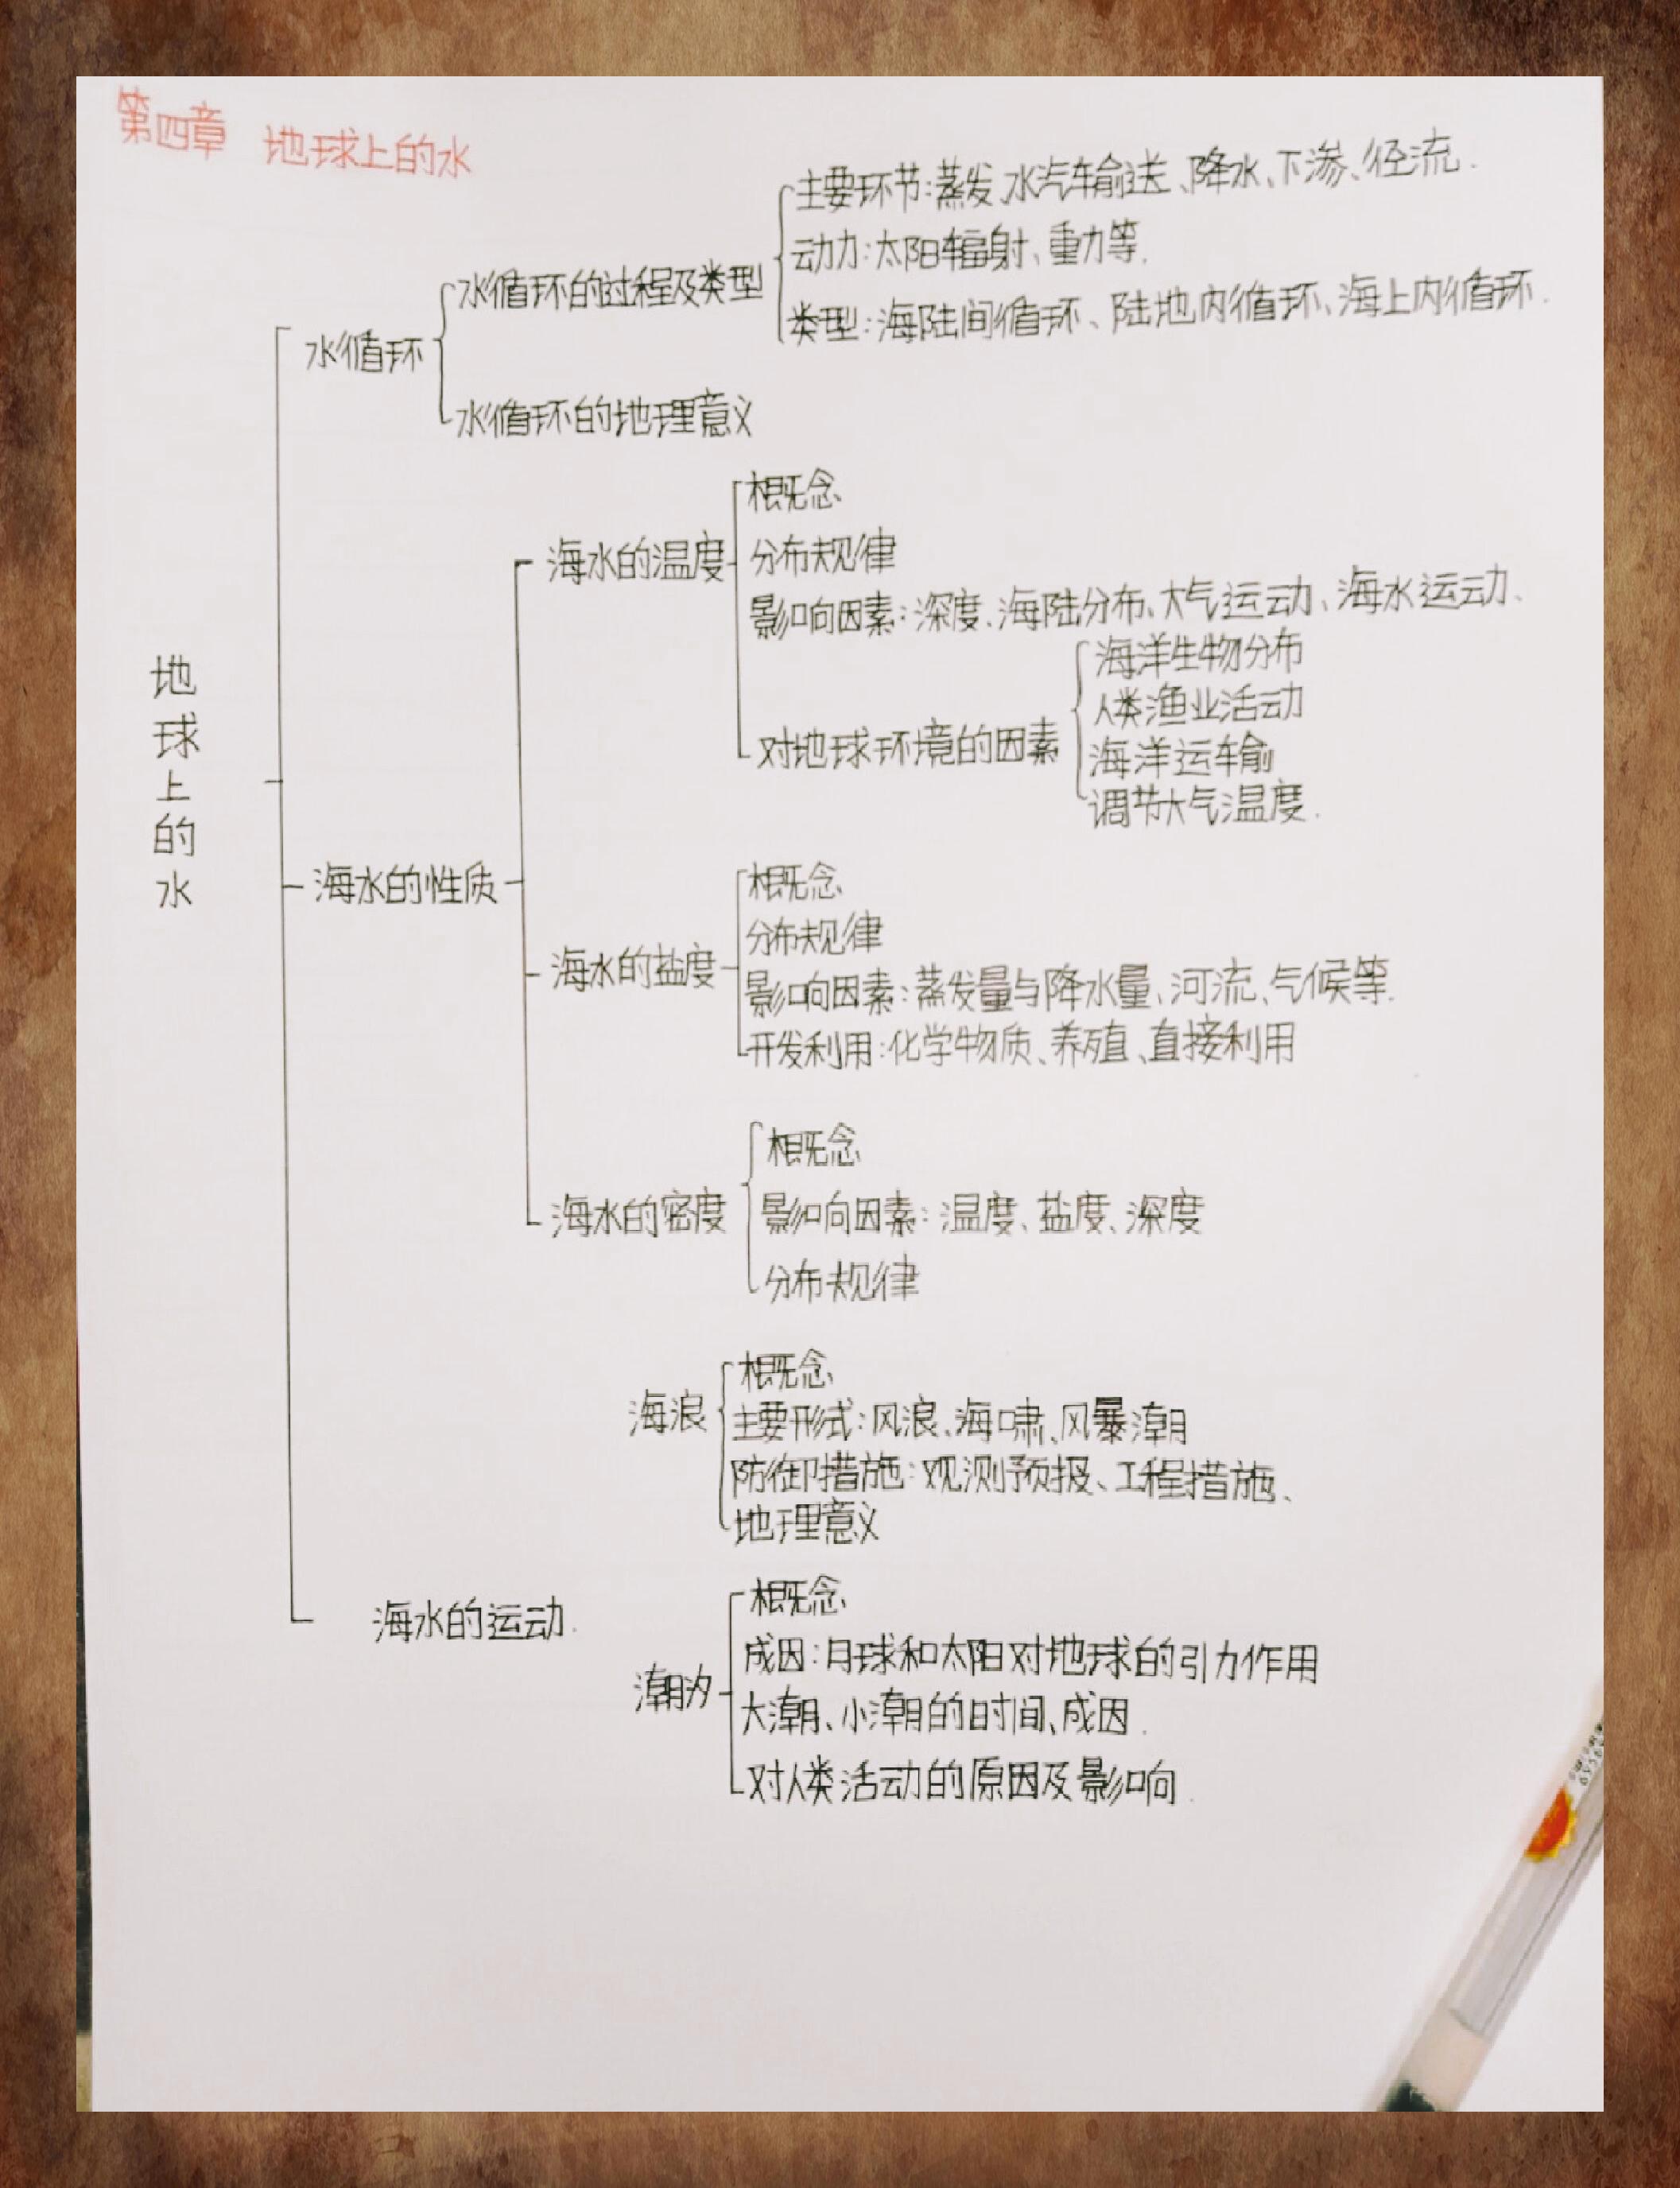 第四章 地球上的水
地球上的水
水循环
水循环的过程及类型
主要环节:蒸发、水汽输送、降水、下渗、径流.
动力:太阳辐射、重力等.
类型:海陆间循环、陆地内循环、海上内循环.
水循环的地理意义
海水的性质
海水的温度
概念
分布规律
影响因素:深度、海陆分布、大气运动、海水运动、
对地球环境的因素
海洋生物分布
人类渔业活动
海洋运输
调节大气温度.
海水的盐度
概念
分布规律
影响因素:蒸发量与降水量、河流、气候等.
开发利用:化学物质、养殖、直接利用
海水的密度
概念
影响因素:温度、盐度、深度
分布规律
海水的运动.
海浪
概念
主要形式:风浪、海啸、风暴潮
防御措施:观测预报、工程措施、
地理意义
潮汐
概念
成因:月球和太阳对地球的引力作用
大潮、小潮的时间、成因.
对人类活动的原因及影响.